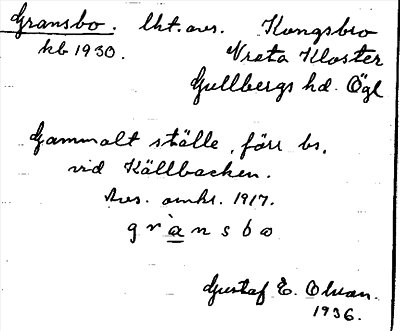 Gransbo. lht. avs. Kungsbro
kb 1930. Vreta Kloster
Gullbergs hd. Ögl
Gammalt ställe, förr bs.
vid Källbacken.
Avs. omkr. 1917.
grànsbo
Gustaf E. Olsson.
1936.